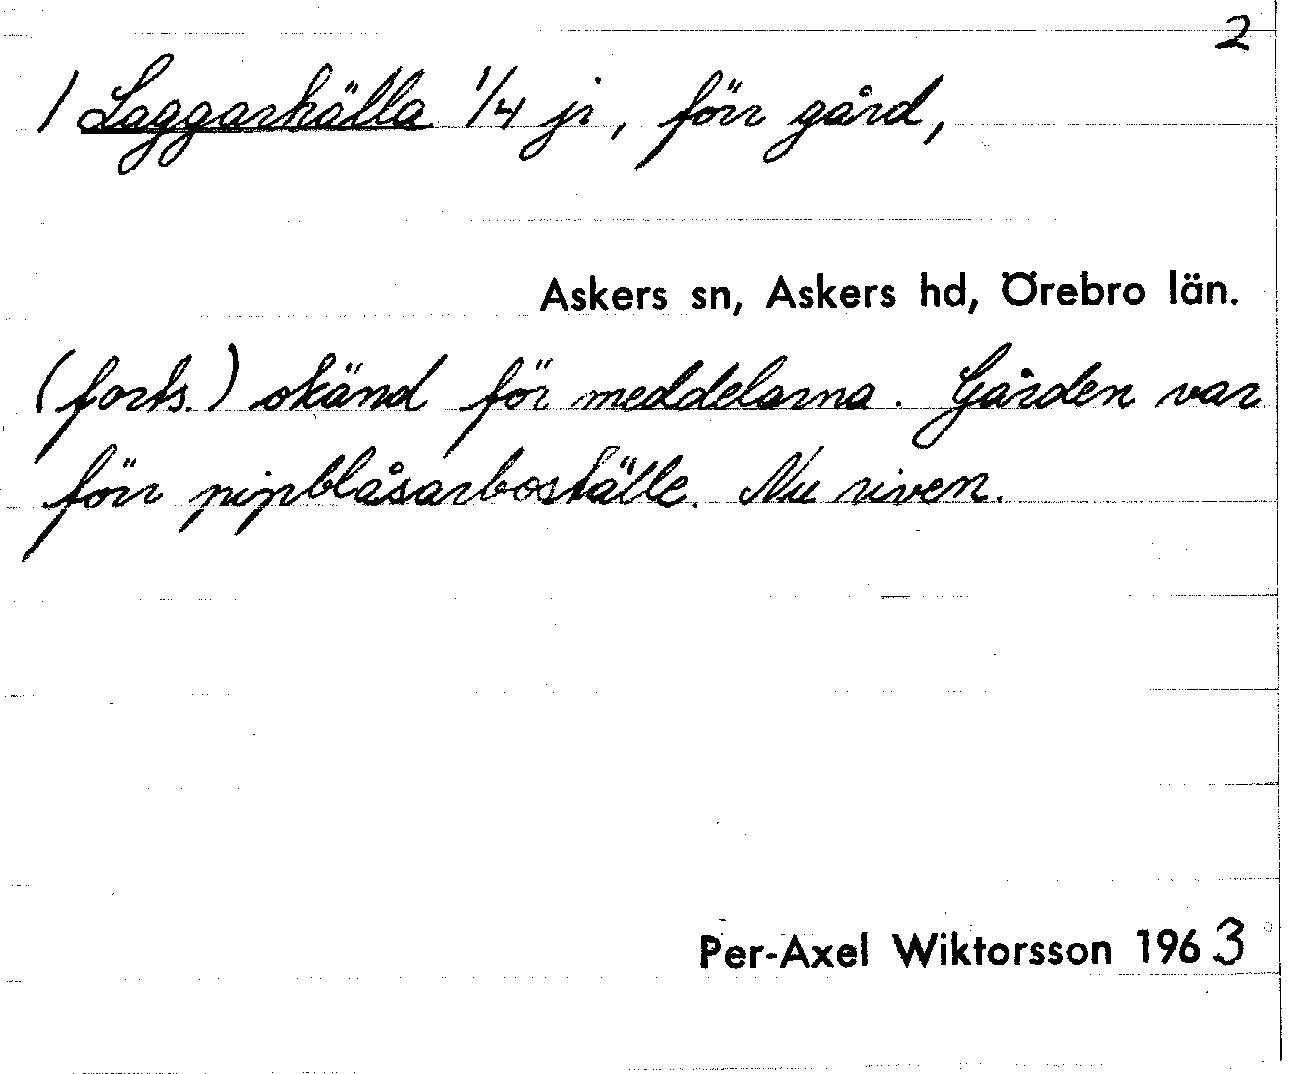 2
/ Laggarhälla 1/4 jr, förr gård,
Askers sn, Askers hd, Örebro län.
(forts.) okänd för meddelarna. Gården var
förr pipblåsarboställe. Nu riven.
Per-Axel Wiktorsson 1963